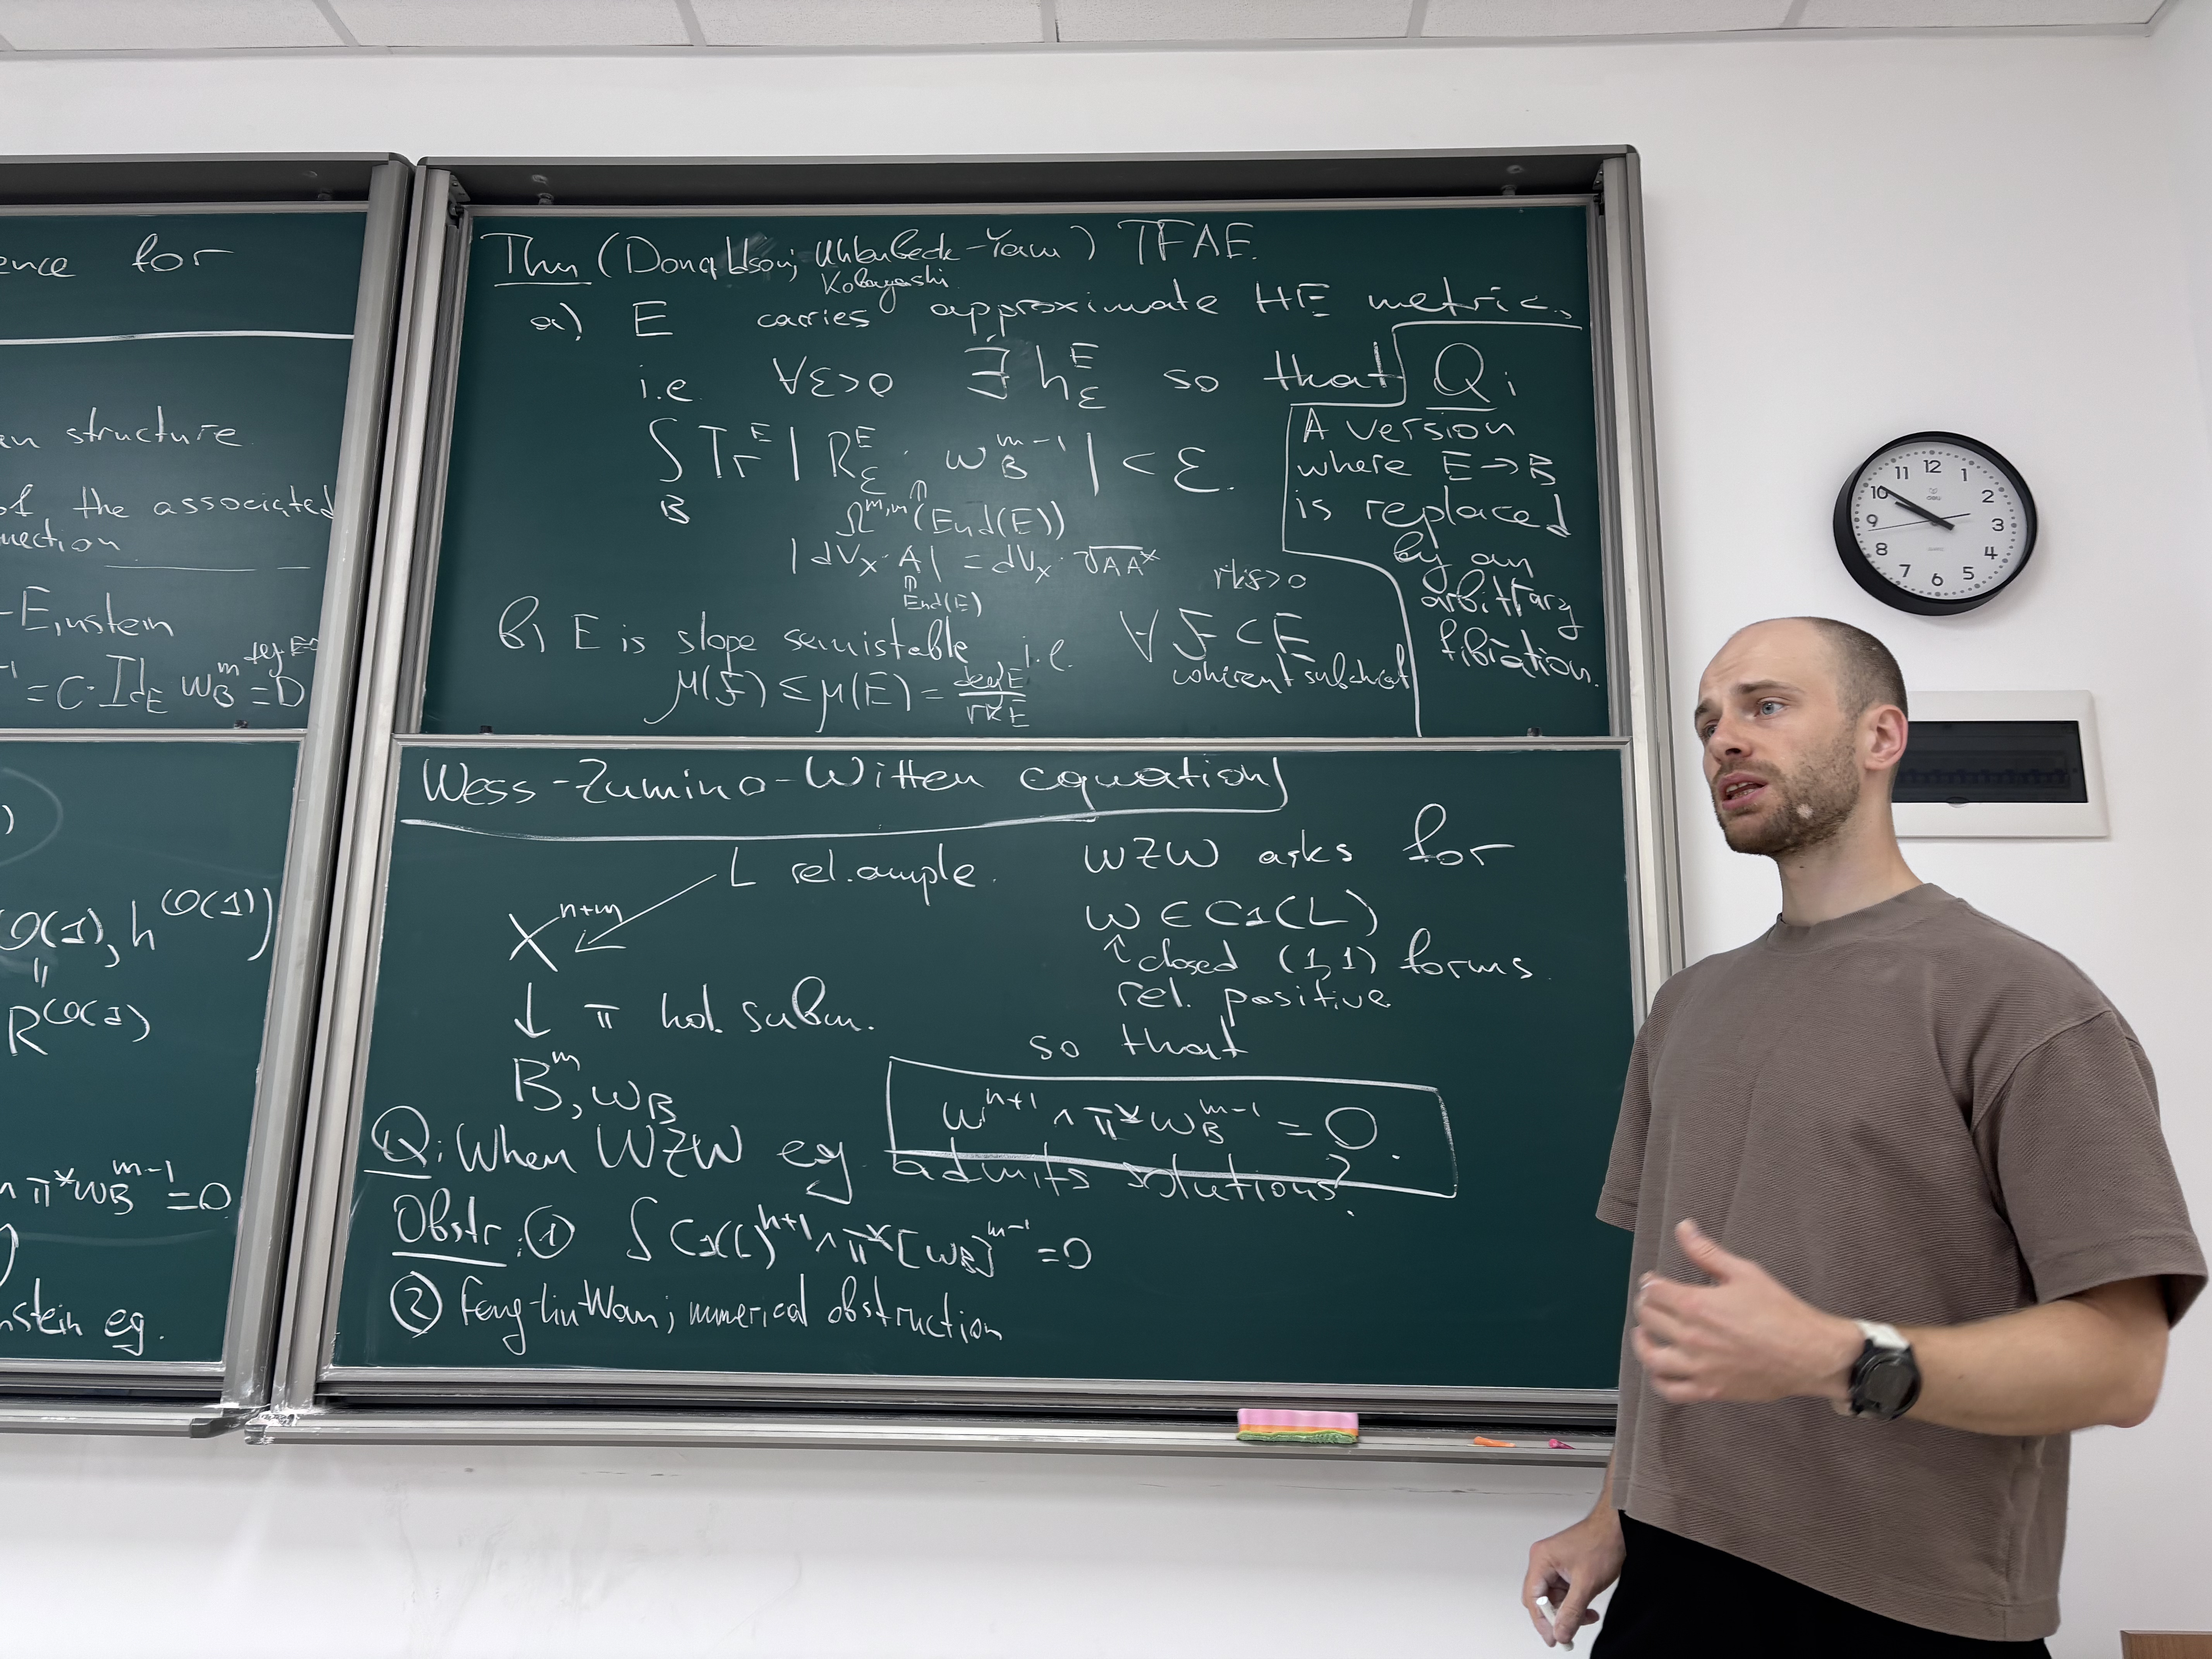 ence for
en structure
of the associated
nection
-Einstein
deg E=0
= C·Id_E ω_B^m = 0
)
O(1), h^{O(1)})
R^{O(1)}
∧ π*ω_B^{m-1} = 0
nstein eq.
Thm (Donaldson, Uhlenbeck-Yau) TFAE.
Kobayashi
a) E carries approximate HE metric,
i.e. ∀ε>0 ∃ h_ε^E so that
∫_B Tr^E | R_ε^E · ω_B^{m-1} | < ε.
⇑
Ω^{m,m}(End(E))
| dV_X · A | = dV_X · √AA*
⇑
End(E)
b) E is slope semistable i.e. ∀ F ⊂ E
rk F > 0
coherent subsheaf
μ(F) ≤ μ(E) = deg E / rk E
Q:
A version
where E → B
is replaced
by an
arbitrary
fibration.
Wess-Zumino-Witten equation
L rel. ample.
X^{n+m}
↓ π hol. subm.
B^m, ω_B
WZW asks for
ω ∈ C1(L)
↑ closed (1,1) forms
rel. positive
so that
ω^{n+1} ∧ π*ω_B^{m-1} = 0.
Q: When WZW eq. admits solutions?
Obstr: ① ∫ C1(L)^{n+1} ∧ π*[ω_B]^{m-1} = 0
② Feng-Liu-Wan; numerical obstruction
12
1
2
3
4
5
6
7
8
9
10
11
QUARTZ